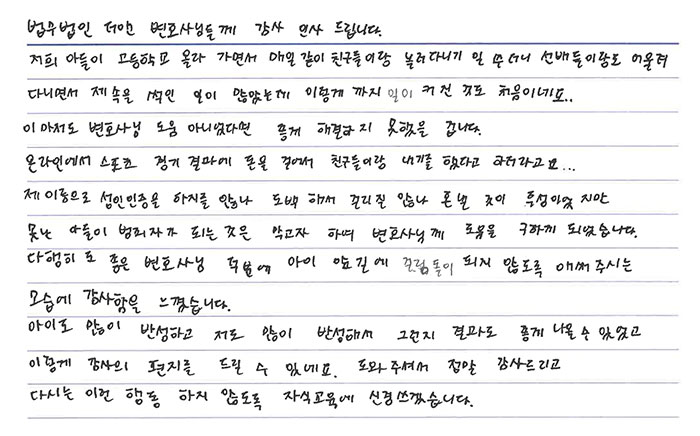 법무법인 더앤 변호사님들께 감사 인사 드립니다.
저희 아들이 고등학교 올라 가면서 매일 같이 친구들이랑 놀러다니기 일 쑤더니 선배들이랑도 어울려
다니면서 제 속을 썩인 일이 많았는데 이렇게 까지 일이 커진 것도 처음이네요..
이 마저도 변호사님 도움 아니었다면 좋게 해결하지 못했을 겁니다.
온라인에서 스포츠 경기 결과에 돈을 걸어서 친구들이랑 내기를 했다고 하더라고요...
제 이름으로 성인인증을 하지를 않나 도박 해서 걸리질 않나 혼낼 것이 투성이었지만
못난 아들이 범죄자가 되는 것은 막고자 하여 변호사님께 도움을 구하게 되었습니다.
다행히도 좋은 변호사님 덕분에 아이 앞길에 걸림돌이 되지 않도록 애써주시는
모습에 감사함을 느꼈습니다.
아이도 많이 반성하고 저도 많이 반성해서 그런지 결과도 좋게 나올 수 있었고
이렇게 감사의 편지를 드릴 수 있네요. 도와주셔서 정말 감사드리고
다시는 이런 행동 하지 않도록 자식교육에 신경쓰겠습니다.